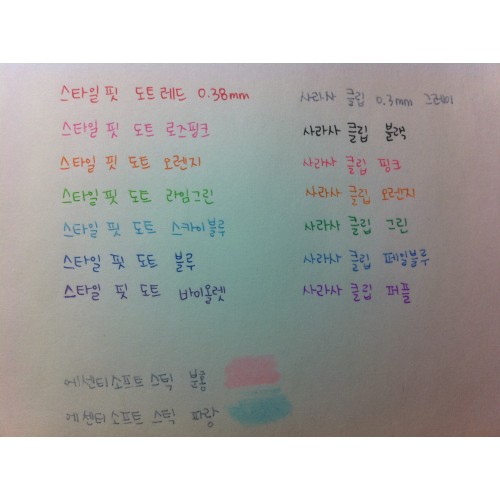 스타일 핏 도트 레드 0.38mm
스타일 핏 도트 로즈핑크
스타일 핏 도트 오렌지
스타일 핏 도트 라임그린
스타일 핏 도트 스카이블루
스타일 핏 도트 블루
스타일 핏 도트 바이올렛
에센티소프트 스틱 분홍
에센티소프트 스틱 파랑
사라사 클립 0.3mm 그레이
사라사 클립 블랙
사라사 클립 핑크
사라사 클립 오렌지
사라사 클립 그린
사라사 클립 페일블루
사라사 클립 퍼플